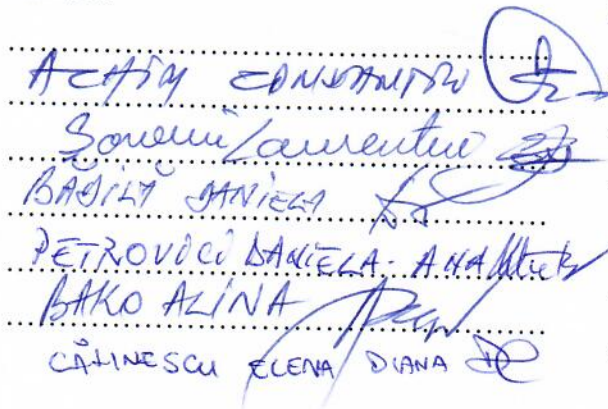 ACHIM CONSTANTIN
Laurentiu
BĂDILĂ DANIELA
PETROVICI DANIELA-ANA
BAKO ALINA
CĂLINESCU ELENA DIANA